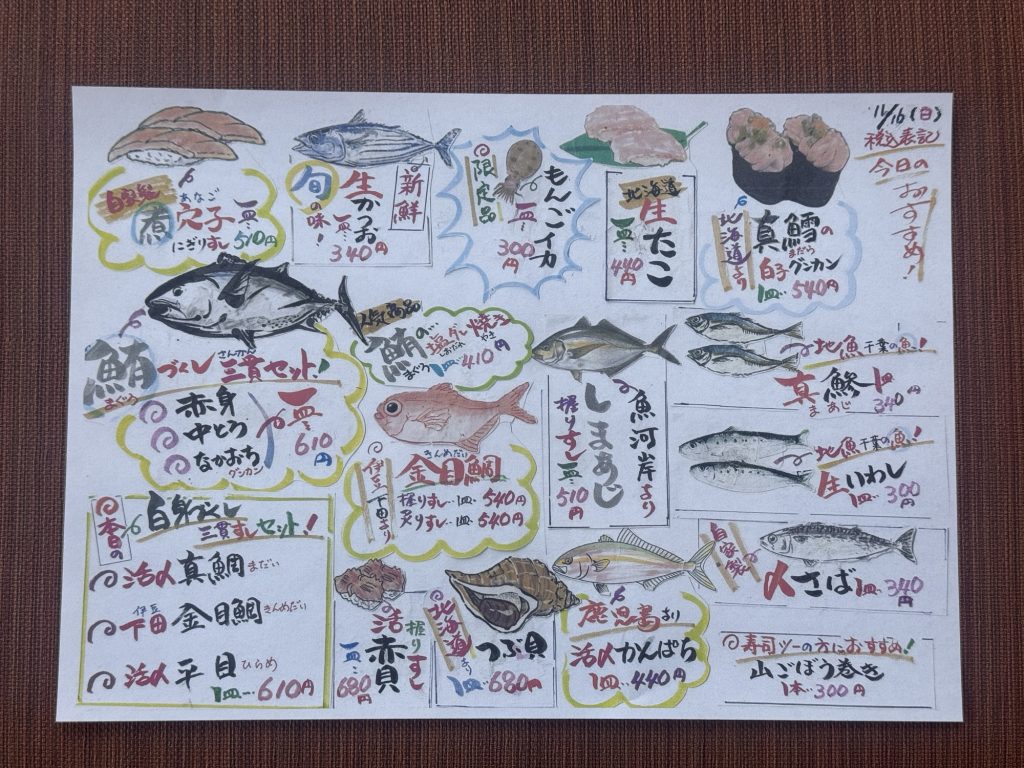 11/16(日)
税込表記
今日の
おすすめ!
自家製
煮穴子
あなご
一皿…
にぎりすし 510円
旬の味!
生かつお
一皿…
340円
新鮮
限定品
もんごイカ
一皿…
300円
北海道
生たこ
一皿…
440円
北海道より
真鱈の
まだら
白子グンカン
1皿…540円
鮪づくし
まぐろ
三貫セット!
さんかん
赤身
中とろ
なかおち
グンカン
一皿…
610円
鮪の
まぐろ
塩ダレ焼き
しおだれ やき
1皿…410円
伊豆下田より
きんめだい
金目鯛
握りすし…1皿…540円
炙りすし…1皿…540円
魚河岸より
しまあじ
握りすし一皿…
510円
地魚 千葉の魚!
真鯵
まあじ
1皿…
340円
地魚 千葉の魚!
生いわし
1皿…300円
自家製
〆さば 1皿…340円
本日の
白身づくし
三貫すしセット!
活〆真鯛 まだい
伊豆
下田 金目鯛 きんめだい
活〆 平目 ひらめ
1皿…610円
活赤貝
握りすし
一皿…
680円
北海道より
つぶ貝
1皿…680円
鹿児島より
活〆かんぱち
1皿…440円
寿司ツーの方におすすめ!
山ごぼう巻き
1本…300円